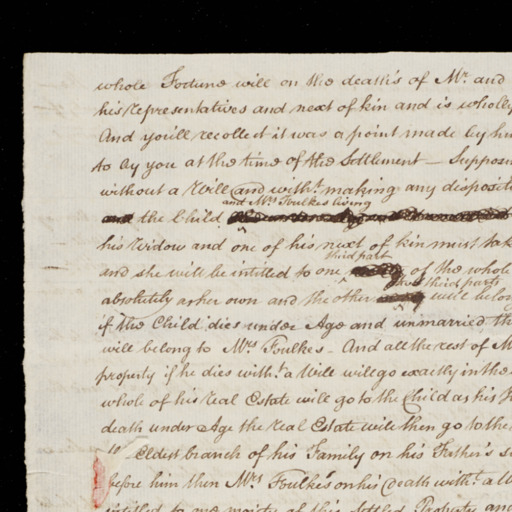 whole Fortune will on the death's of Mr. and
his Representatives and next of kin and is wholly
And you'll recollect it was a point made by
to by you at the time of the Settlement — Suppose
without a Will and witht. making any
and Mrs. Foulkes living
the Child
his Widow and one of his next of kin must
third part
and she will be intitled to one of the whole
third parts
absolutely as her own and the other will
if the Child dies under Age and unmarried
will belong to Mrs. Foulkes - And all the rest of
property if he dies witht. a Will will go exactly in the
whole of his real Estate will go to the Child as his
death under Age the real Estate will then go to the
Eldest branch of his Family on his Father's
before him then Mrs. Foulkes on his Death witht. a
intitled to one moiety of this Settled Property and